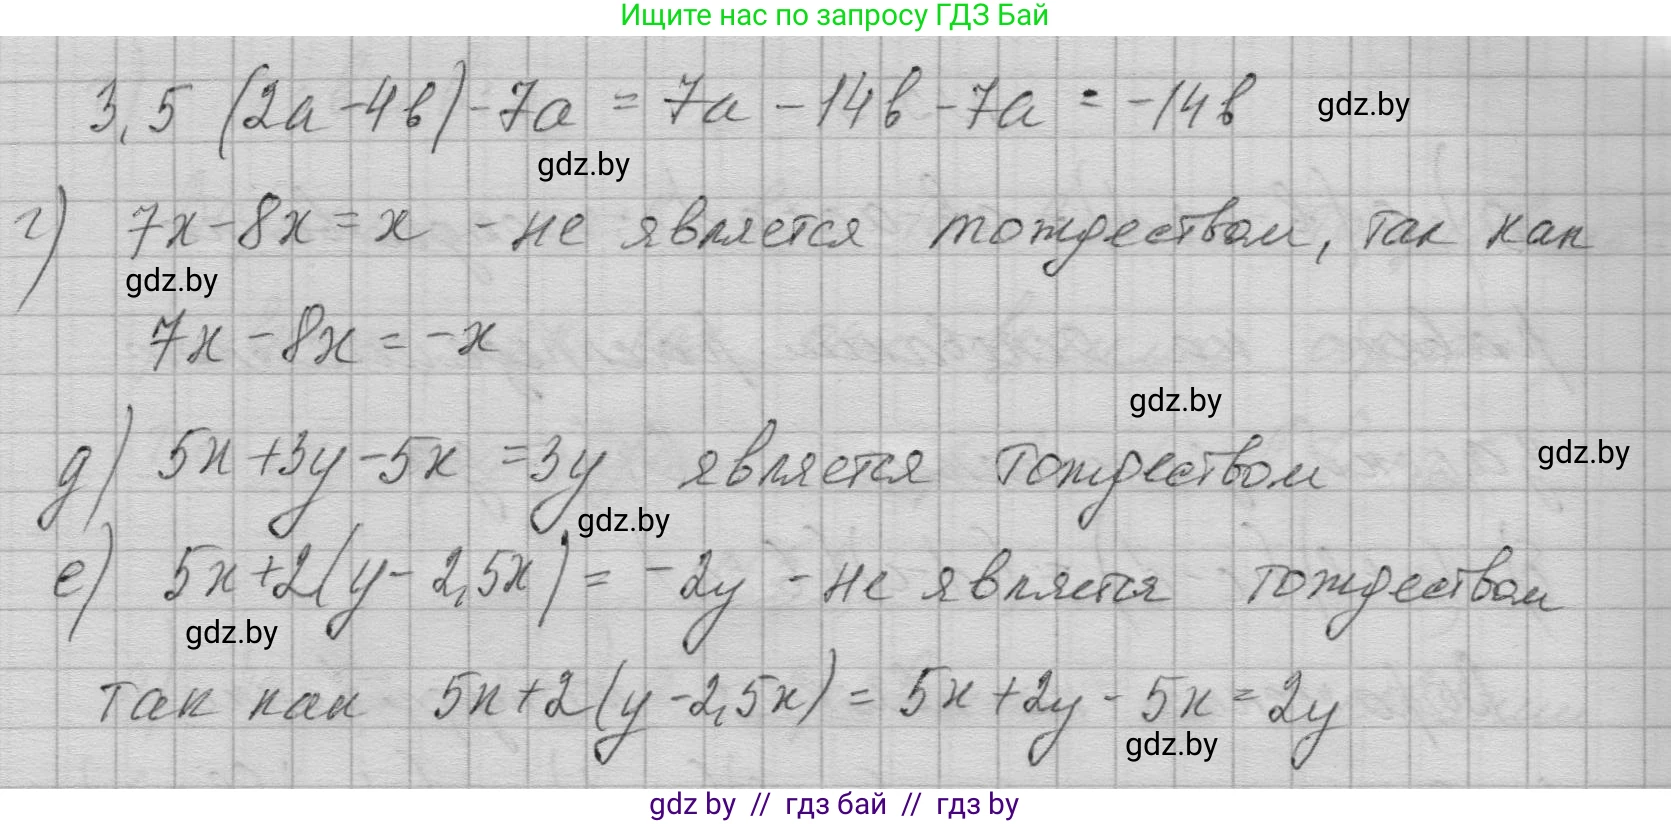 Ищите нас по запросу ГДЗ Бай
3,5 (2a - 4b) - 7a = 7a - 14b - 7a = -14b gdz.by
gdz.by
г) 7x - 8x = x - не является тождеством, так как
gdz.by
7x - 8x = -x
gdz.by
д) 5x + 3y - 5x = 3y является тождеством gdz.by
gdz.by
е) 5x + 2(y - 2,5x) = -2y - не является тождеством
gdz.by
так как 5x + 2(y - 2,5x) = 5x + 2y - 5x = 2y
gdz.by
gdz by // гдз бай // гдз by